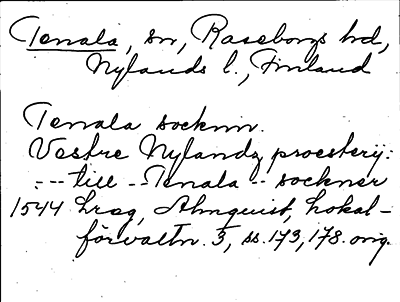 Tenala, sn, Raseborgs hd,
Nylands l., Finland
Tenala socknn.
Vestre Nylandz proesterij:
--- till -- Tenala -- sockner
1544 hrag, Almquist, Lokal-
förvaltn. 3, ss. 173, 178. orig.